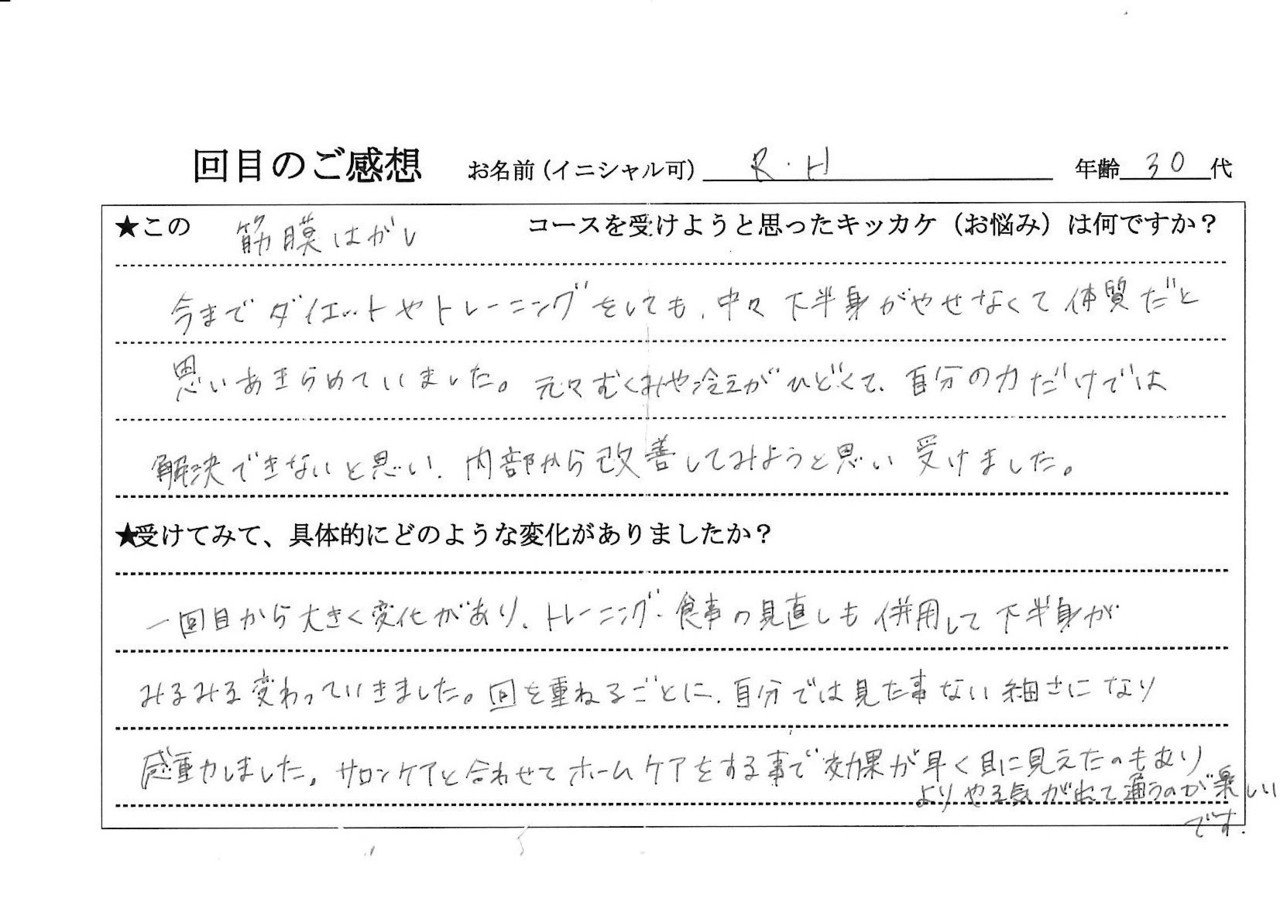 回目のご感想 お名前(イニシャル可) R.H 年齢 30 代
★この 筋膜はがし コースを受けようと思ったキッカケ(お悩み)は何ですか?
今までダイエットやトレーニングをしても、中々下半身がやせなくて体質だと
思いあきらめていました。元々むくみや冷えがひどくて、自分の力だけでは
解決できないと思い、内部から改善してみようと思い受けました。
★受けてみて、具体的にどのような変化がありましたか?
一回目から大きく変化があり、トレーニング・食事の見直しも併用して下半身が
みるみる変わっていきました。回を重ねるごとに、自分では見た事ない細さになり
感動しました。サロンケアと合わせてホームケアをする事で効果が早く目に見えたのもあり
よりやる気が出て通うのが楽しい
です.